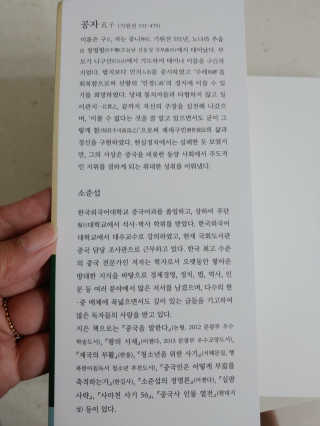 공자 孔子 (기원전 551-479)
이름은 구丘, 자는 중니仲尼. 기원전 551년, 노나라 추읍
에서 태어났다. 부
모가 니구산에서 기도하여 태어나 이름을 구丘라
지었다.
회복함으로써 선왕의 경지에 이를 수 있
기를 희망하였다. 당대 통치자들과 타협하지 않고 일
이관지一以貫之, 끝까지 자신의 주장을 실천해 나갔으
며, '이룰 수 없다는 것을 잘 알고 있으면서도 굳이 그
렇게 함'으로써 제세구민의 삶과
정신을 구현하였다. 현실정치에서는 실패한 듯 보였지
만, 그의 사상은 중국을 비롯한 동양 사회에서 주도적
인 지위를 점하게 되는 위대한 성취를 이뤄냈다.
소준섭
한국외국어대학교 중국어과를 졸업하고, 상하이 푸단
대학교에서 석사·박사 학위를 받았다. 한국외국어
대학교에서 대우교수로 강의하였고, 현재 국회도서관
중국 담당 조사관으로 근무하고 있다. 한국 최고 수준
의 중국 전문가인 저자는 학자로서 오랫동안 쌓아온
방대한 지식을 바탕으로 경제경영, 정치, 법, 역사, 인
문 등 여러 분야에서 많은 저서를 남겼으며, 다수의 한
·중 매체에 폭넓으면서도 깊이 있는 글들을 기고하여
많은 독자들의 사랑을 받고 있다.
지은 책으로는 『중국을 말한다』(논형, 2012 문광부 우수
학술도서), 『왕의 서재』(어젠다, 2013 문광부 우수교양도서),
『제국의 부활』(한울), 『청소년을 위한 사기』(서해문집, 행
복한아침독서 청소년 추천도서), 『중국인은 어떻게 부를
축적하는가』(한길사), 『소준섭의 정명론』(어젠다), 『십팔
사략』, 『사마천 사기 56』, 『중국사 인물 열전』(현대지
성) 등이 있다.